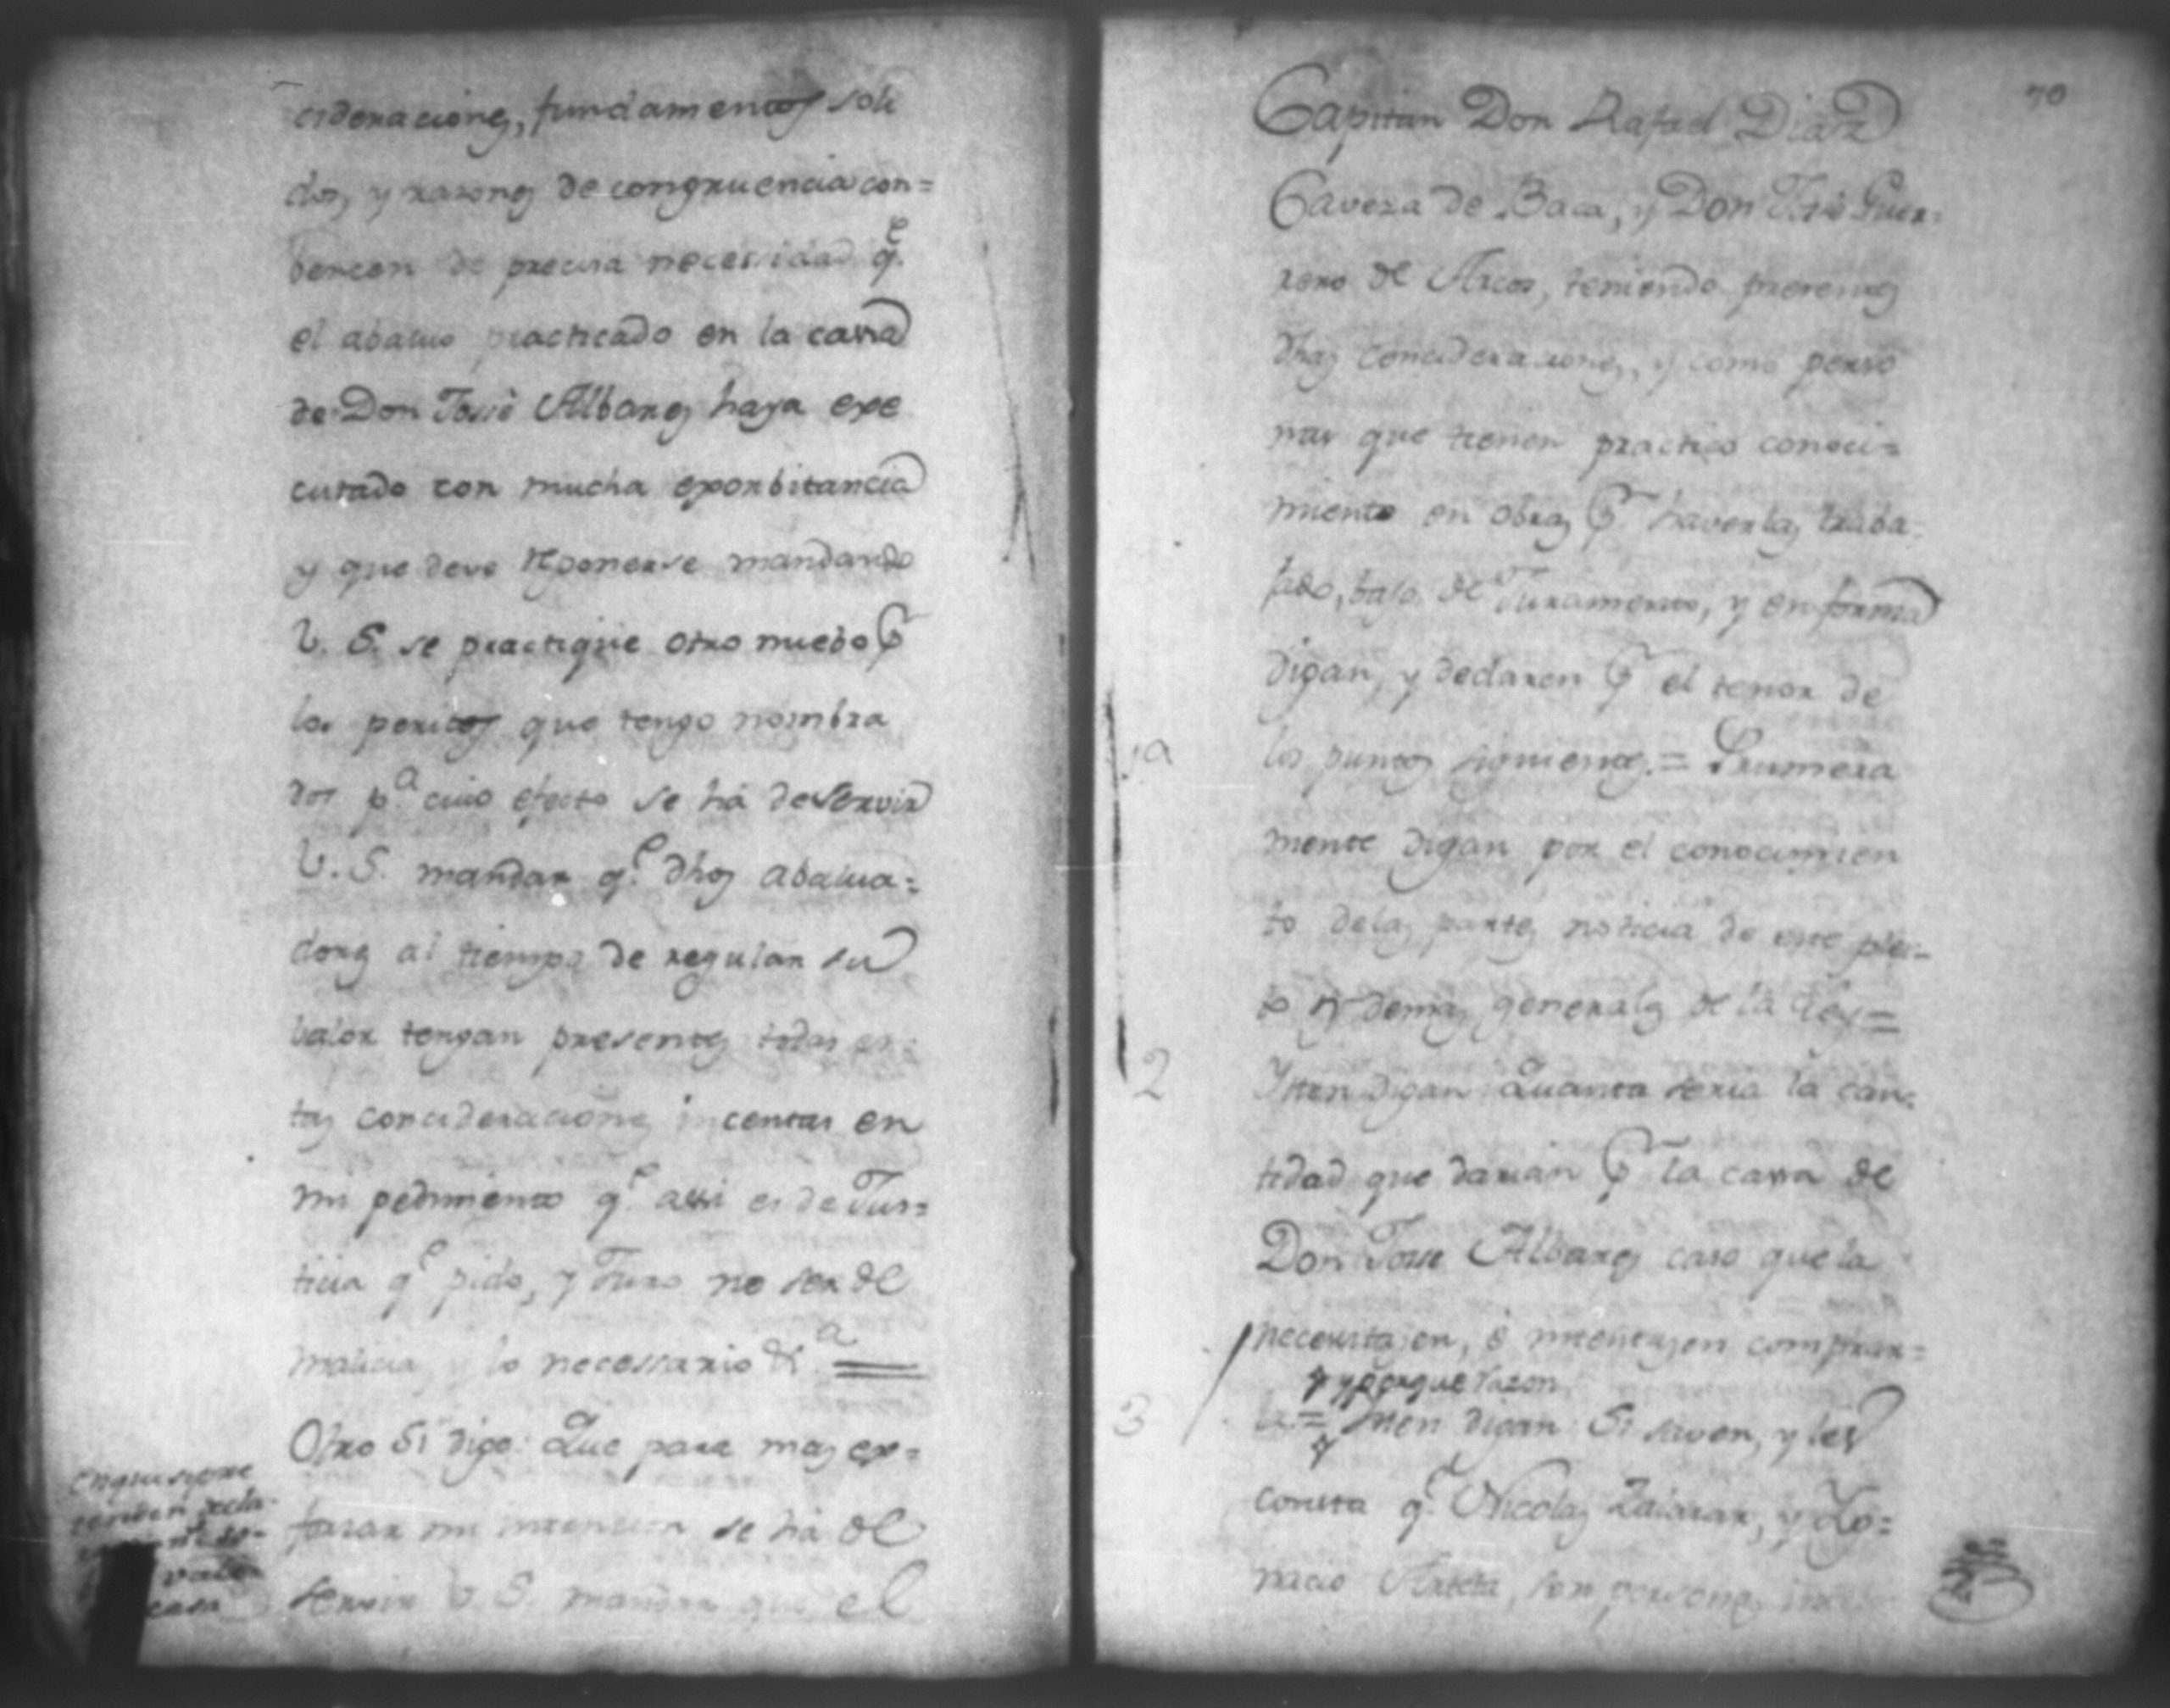 cideraciones, fundamentos soli
dos, y razones de congruencia con=
bencen de precisa necessidad q.e
el abaluo practicado en la cassa
de Don Jossè Albares haya exe
cutado con mucha exorbitancia
y que deve reponerse mandando
V. S. se practique otro nuebo p.r
los peritos que tengo nombra
dos p.a cuio efecto se há de servir
V. S. mandar q.e dhos abalua=
dores al tiempo de regular su
balor tengan presentes todas es=
tas concideraciones incertas en
mi pedimiento q.e assi es de Jus=
ticia q.e pido, y Juro no ser de
malicia y lo necessario &.a ==
Otro Si digo: Que para mas ex=
forsar mi intencion se há de
servir V. S. mandar que el
casa
70
Capitan Don Rafael Diaz
Caveza de Baca, y Don José Guer=
rero de Arcos, teniendo presentes
dhas concideraciones, y como perso
nas que tienen practico conoci=
miento en obras p.r haverlas traba=
jado, bajo de Juramento, y en forma
digan, y declaren p.r el tenor de
1a los puntos siguientes.= Primera
mente digan por el conocimien
to de las partes noticia de este plei=
to y demas generales de la Ley=
2 Yten digan Quanta seria la can=
tidad que darian p.r la cassa de
Don Josse Albares caso que la
necesitasen, ò intentasen comprar=
y porque razon
3 la.= Yten digan Si saven, y les
consta q.e Nicolas Salazar, y Yg=
nacio Arteta, son personas